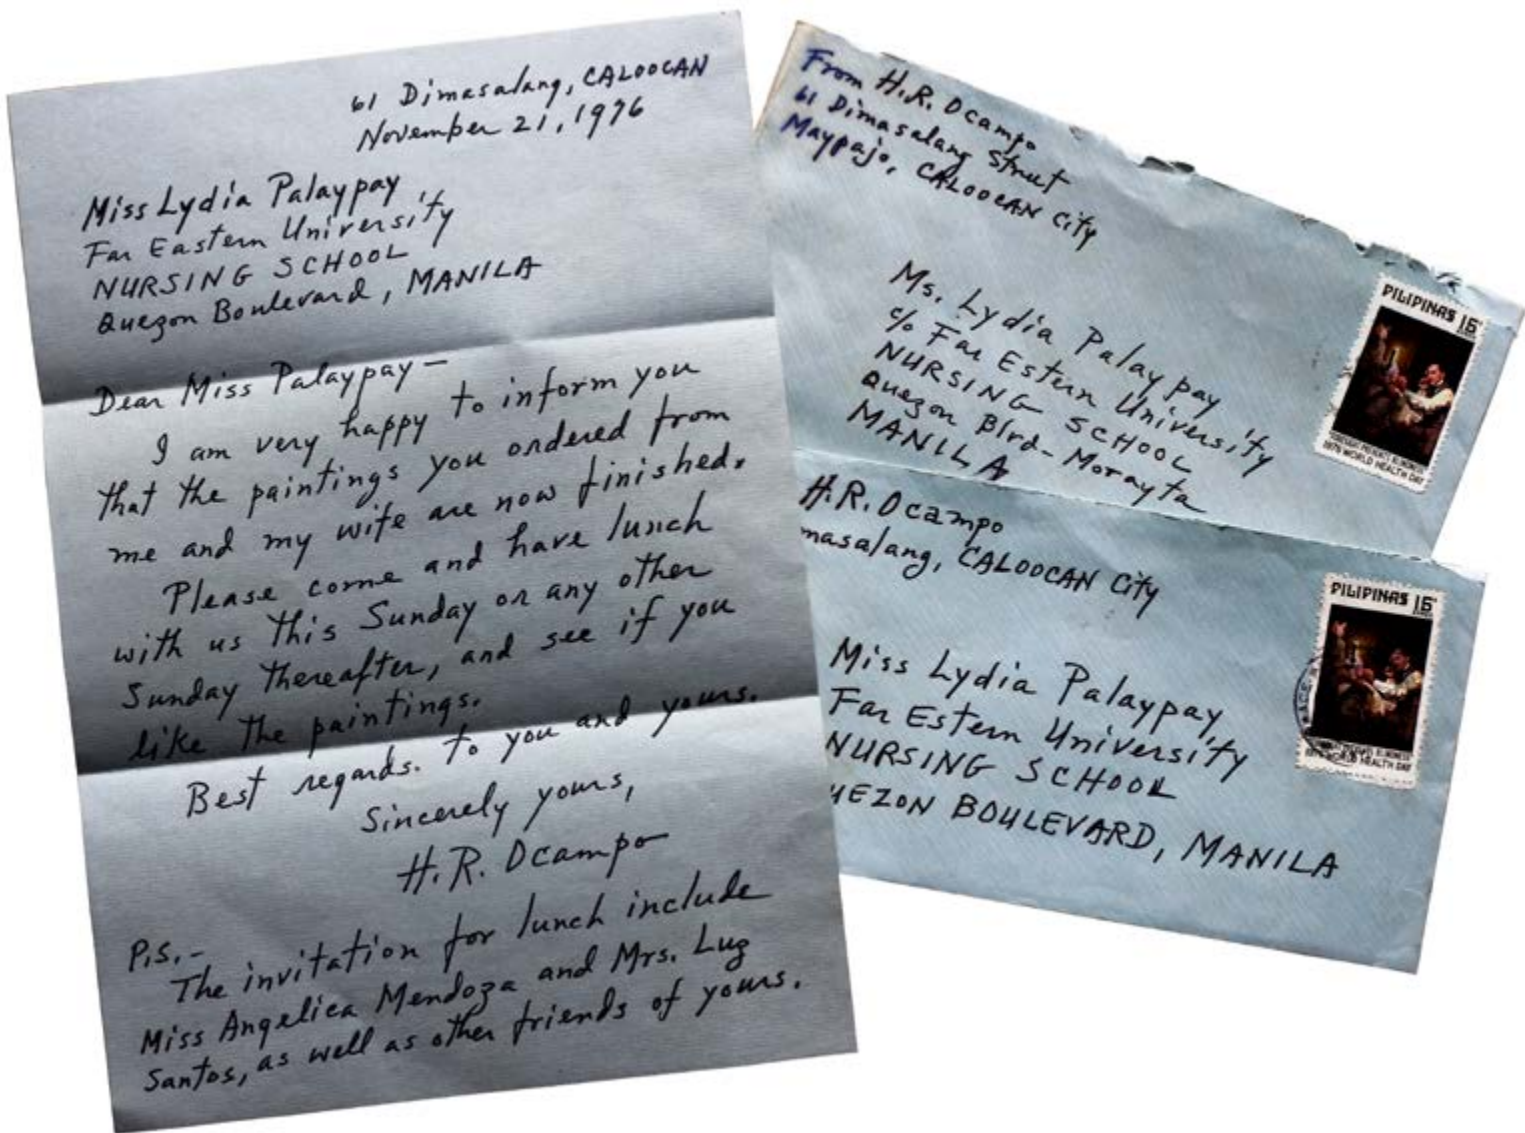 61 Dimasalang, CALOOCAN
November 21, 1976
Miss Lydia Palaypay
Far Eastern University
NURSING SCHOOL
Quezon Boulevard, MANILA
Dear Miss Palaypay—
I am very happy to inform you
that the paintings you ordered from
me and my wife are now finished.
Please come and have lunch
with us this Sunday or any other
Sunday thereafter, and see if you
like the paintings.
Best regards. to you and yours.
Sincerely yours,
H.R. Ocampo
P.S.-
The invitation for lunch include
Miss Angelica Mendoza and Mrs. Luz
Santos, as well as other friends of yours.
From H.R. Ocampo
61 Dimasalang Street
Maypajo, CALOOCAN City
Ms. Lydia Palaypay
c/o Far Estern University
NURSING SCHOOL
Quezon Blrd- Morayta
MANILA
PILIPINAS 15
1976 WORLD HEALTH DAY
H.R. Ocampo
masalang, CALOOCAN City
Miss Lydia Palaypay
Far Estern University
NURSING SCHOOL
UEZON BOULEVARD, MANILA
PILIPINAS 15
WORLD HEALTH DAY